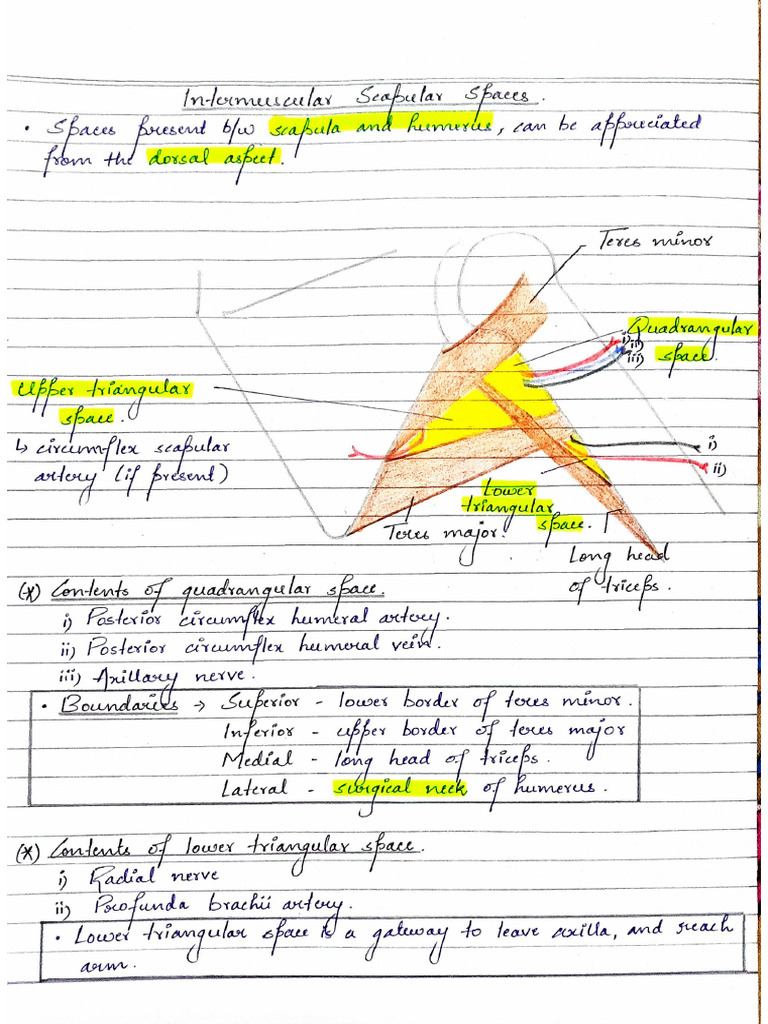 Intermuscular Scapular Spaces.
• Spaces present b/w scapula and humerus, can be appreciated
from the dorsal aspect.
Teres minor
Quadrangular
space.
i)
ii)
iii)
Upper triangular
space.
↳ circumflex scapular
artery (if present)
i)
ii)
Lower
triangular
space.
Teres major.
Long head
of triceps.
(*) Contents of quadrangular space.
i) Posterior circumflex humeral artery.
ii) Posterior circumflex humeral vein.
iii) Axillary nerve.
• Boundaries → Superior - lower border of teres minor.
Inferior - upper border of teres major
Medial - long head of triceps.
Lateral - surgical neck of humerus.
(*) Contents of lower triangular space.
i) Radial nerve
ii) Profunda brachii artery.
• Lower triangular space is a gateway to leave axilla, and reach
arm.